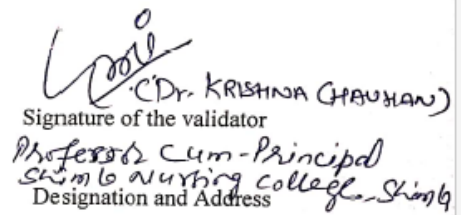 (Dr. KRISHNA CHAUHAN)
Signature of the validator
Professor Cum-Principal
Shimla Nursing College, Shimla
Designation and Address